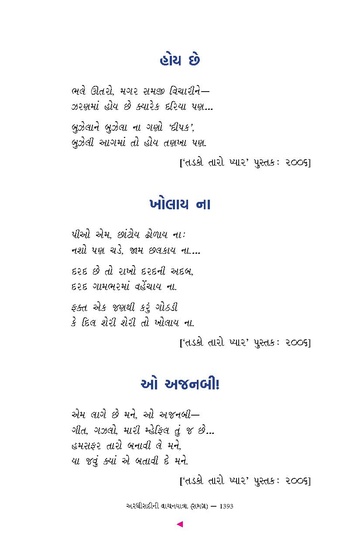 હોય છે
ભલે ઊતરો, મગર સમજી વિચારીને—
ઝરણમાં હોય છે ક્યારેક દરિયા પણ...
બુઝેલાને બુઝેલા ના ગણો ‘દીપક’,
બુઝેલી આગમાં તો હોય તણખા પણ.
[‘તડકો તારો પ્યાર’ પુસ્તક: ૨૦૦૬]
ખોલાય ના
પીઓ એમ, છાંટોય ઢોળાય ના:
નશો પણ ચડે, જામ છલકાય ના....
દરદ છે તો રાખો દરદની અદબ,
દરદ ગામભરમાં વહેંચાય ના.
ફક્ત એક જણથી કરું ગોઠડી
કે દિલ શેરી શેરી તો ખોલાય ના.
[‘તડકો તારો પ્યાર’ પુસ્તક: ૨૦૦૬]
ઓ અજનબી!
એમ લાગે છે મને, ઓ અજનબી—
ગીત, ગઝલો, મારી મ્હેફિલ તું જ છે...
હમસફર તારો બનાવી લે મને,
યા જવું ક્યાં એ બતાવી દે મને.
[‘તડકો તારો પ્યાર’ પુસ્તક: ૨૦૦૬]
અરધીસદીની વાચનયાત્રા (સમગ્ર) — 1393